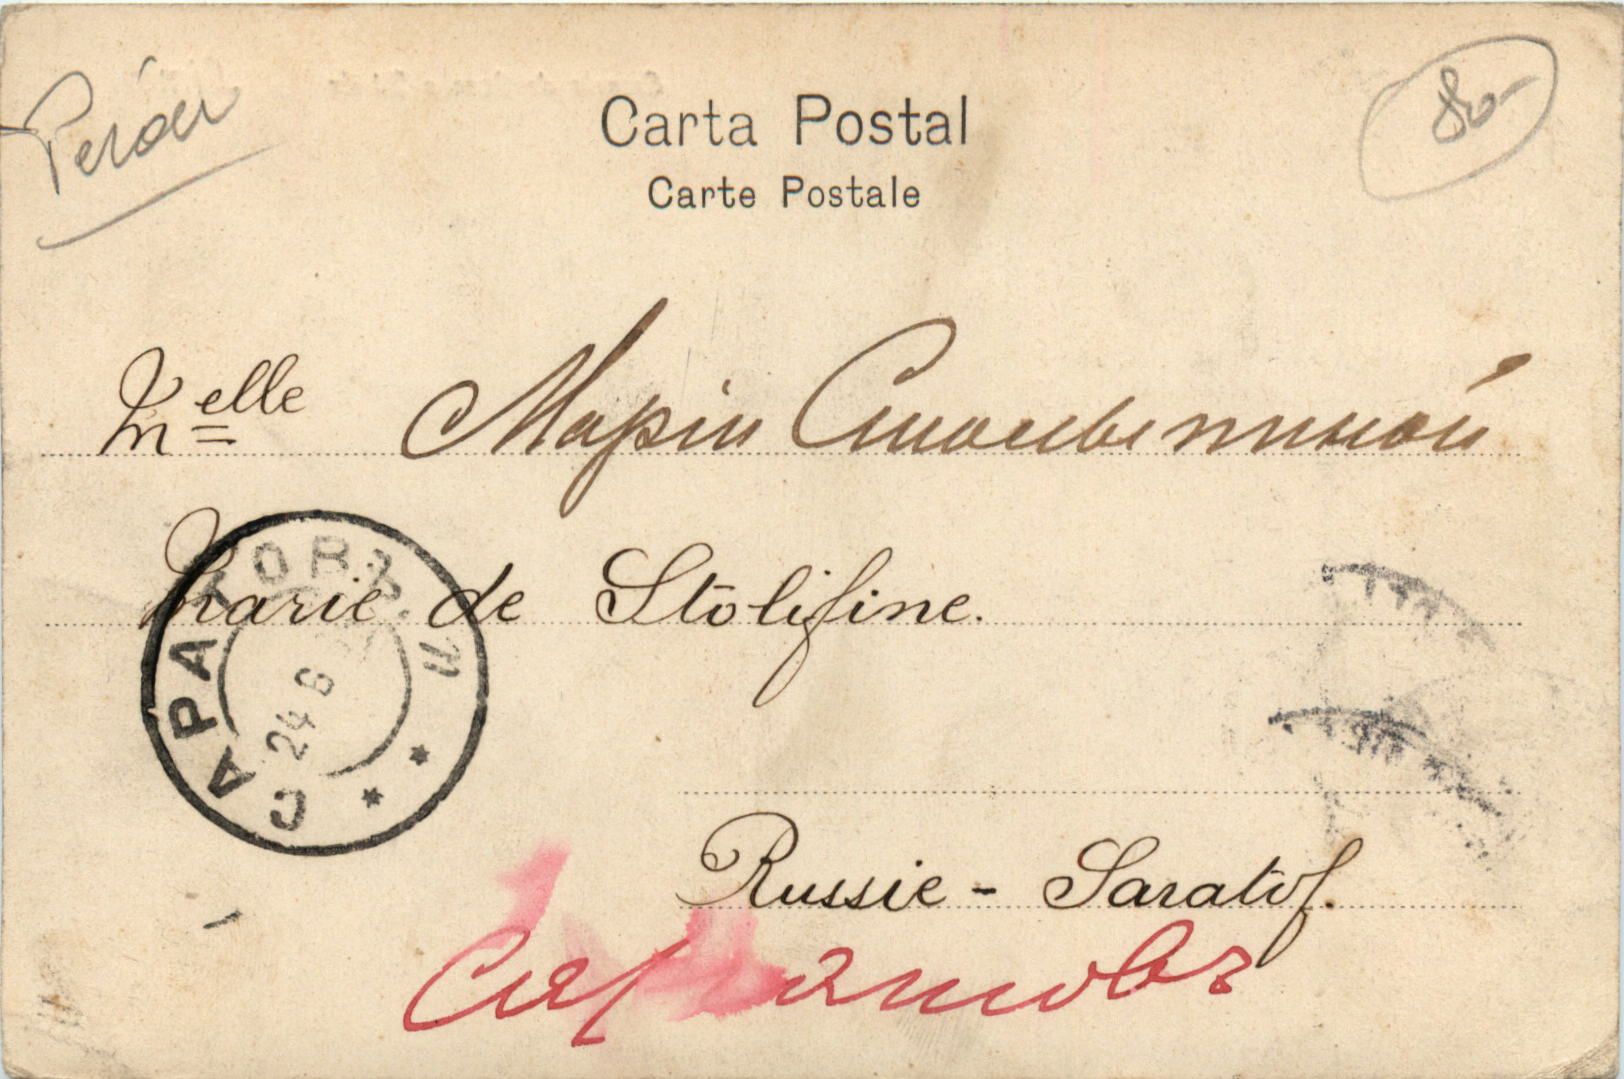 Carta Postal
Carte Postale
80-
Melle Маріи Столыпиной
Marie de Stolifine.
САРАТОВЪ
24 6
Russie - Saratof.
Саратовъ